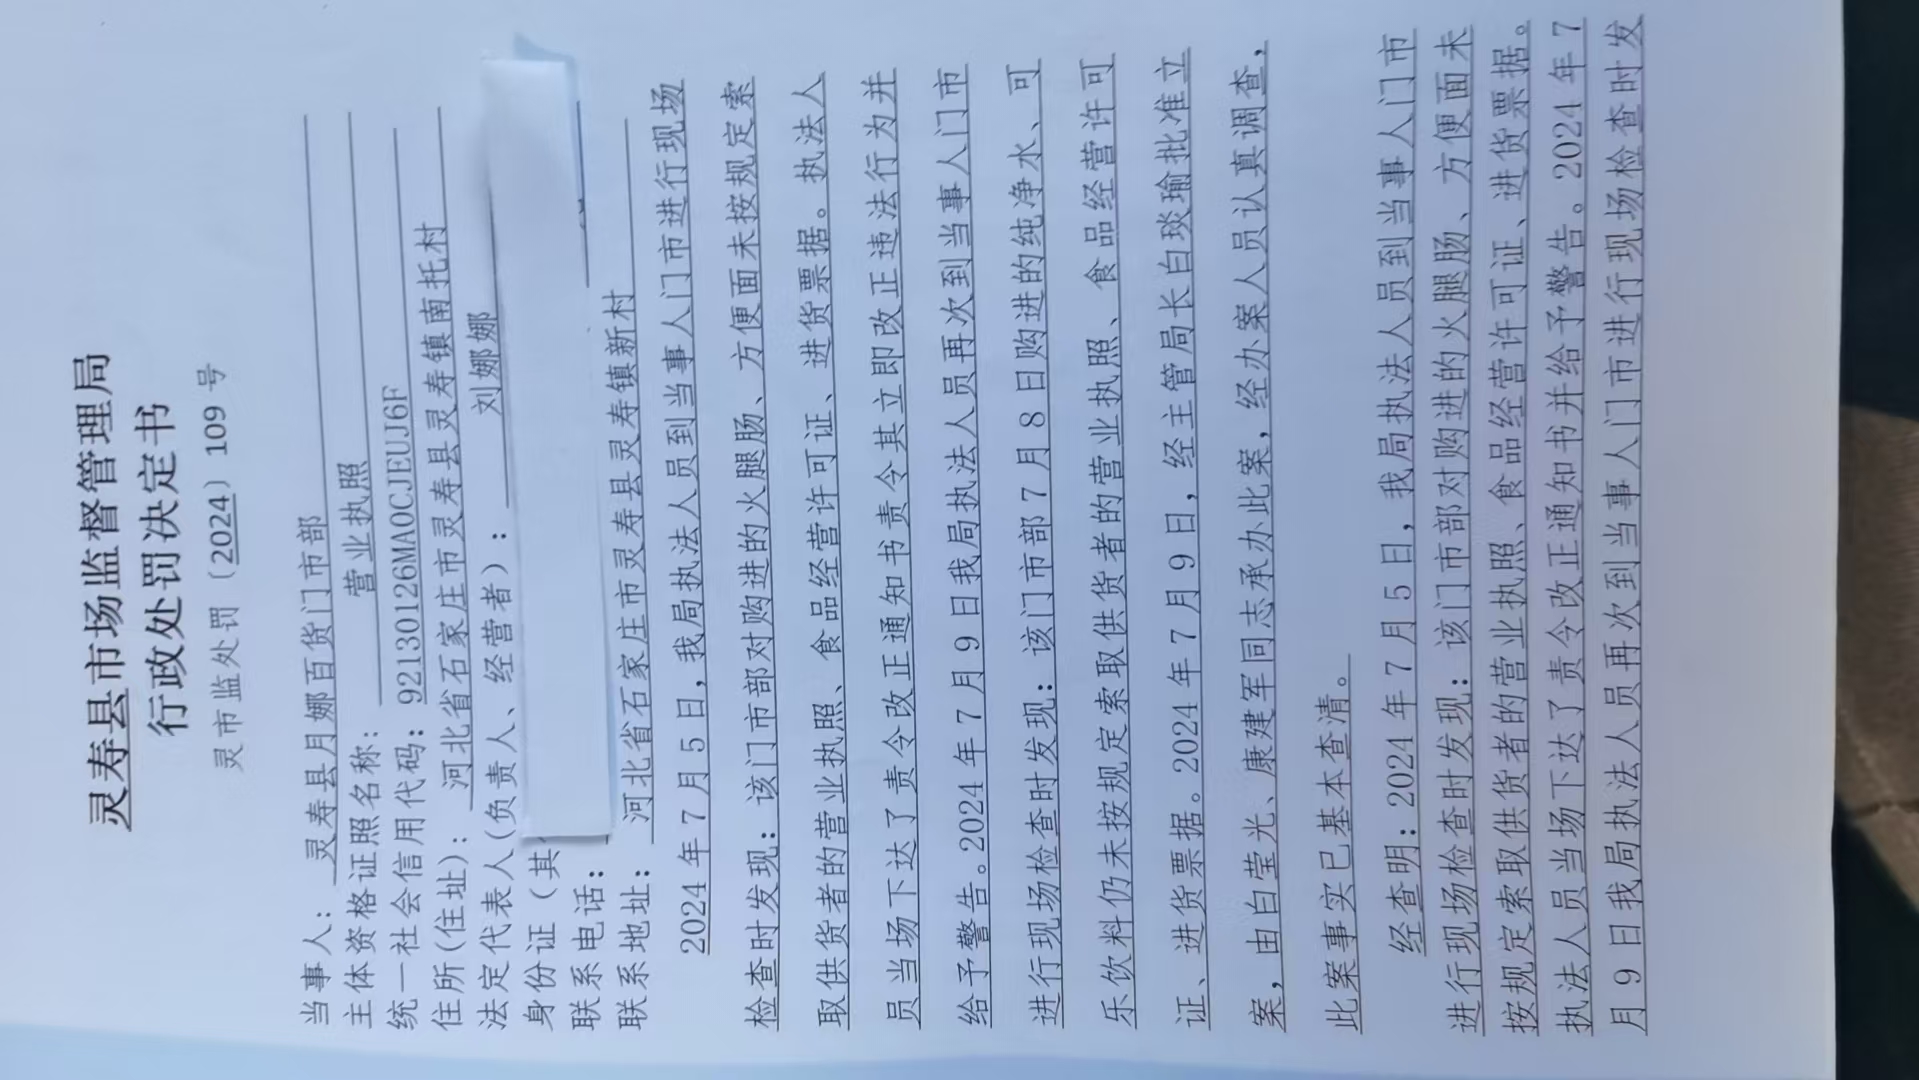 灵寿县市场监督管理局
行政处罚决定书
灵市监处罚〔2024〕109号
当事人：灵寿县月娜百货门市部
主体资格证照名称：营业执照
统一社会信用代码：92130126MA0CJEUJ6F
住所(住址)：河北省石家庄市灵寿县灵寿镇南托村
法定代表人(负责人、经营者)：刘娜娜
身份证（其
联系电话：
联系地址：河北省石家庄市灵寿县灵寿镇新村
2024年7月5日，我局执法人员到当事人门市进行现场
检查时发现：该门市部对购进的火腿肠、方便面未按规定索
取供货者的营业执照、食品经营许可证、进货票据。执法人
员当场下达了责令改正通知书责令其立即改正违法行为并
给予警告。2024年7月9日我局执法人员再次到当事人门市
进行现场检查时发现：该门市部7月8日购进的纯净水、可
乐饮料仍未按规定索取供货者的营业执照、食品经营许可
证、进货票据。2024年7月9日，经主管局长白琰瑜批准立
案，由白莹光、康建军同志承办此案，经办案人员认真调查，
此案事实已基本查清。
经查明：2024年7月5日，我局执法人员到当事人门市
进行现场检查时发现：该门市部对购进的火腿肠、方便面未
按规定索取供货者的营业执照、食品经营许可证、进货票据。
执法人员当场下达了责令改正通知书并给予警告。2024年7
月9日我局执法人员再次到当事人门市进行现场检查时发